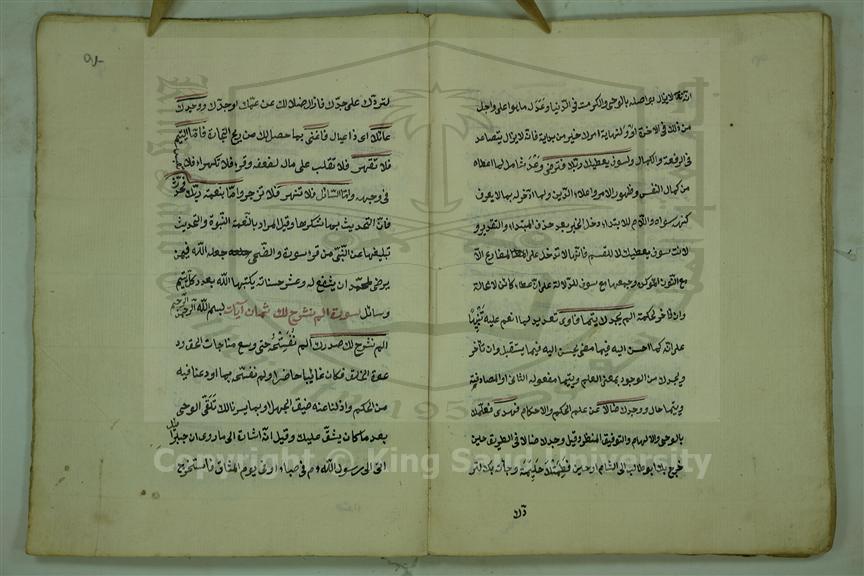 انه لا يزال يواصله بالوحي والكرامت في الدنيا وعد له ما هو اعلى واجل
من ذلك في الاخرة او ولنهاية امرك خير من بداية فانه لا يزال يتصاعد
في الرفعة والكمال ولسوف يعطيك ربك فترضى وعد شامل لما اعطاه
من كمال النفس وظهور الامر واعلاء الدين ولما ادخر له مما لا يعرف
كنهه سواه واللام للابتداء دخل الخبر بعد حذف المبتداء والتقدير و
لانت سوف يعطيك لا للقسم فانها لا تدخل على المضارع الا
مع النون المؤكدة وجمعها مع سوف للدلالة على ان عطاء كائن لا محالة
وان تأخر لحكمة الم يجدك يتيما فاوى تعديد لما انعم عليه تنبيها
على انه كما احسن اليه فيما مضى يحسن اليه فيما يستقبل وان تأخر
ويجدك من الوجود بمعنى العلم ويتيما مفعوله الثاني او المصادفة
ويتيما حال ووجدك ضالا عن علم الحكم والاحكام فهدى فعلمك
بالوحي والالهام والتوفيق للنظر وقيل وجدك ضالا في الطريق حين
خرج بك ابو طالب الى الشام او حين فطمتك حليمة وجاءت بك لتر
دك
لتردك على جدك فازال ضلالك عن عمك او جدك ووجدك
عائلا اي ذا عيال فاغنى بما حصل لك من ربح التجارة فاما اليتيم
فلا تقهر فلا تغلب على ماله لضعفه وقرء فلا تكهر اي فلا تعبس
في وجهه واما السائل فلا تنهر فلا تزجر واما بنعمة ربك فحدث
فان التحدث بها شكرها وقيل المراد بالنعمة النبوة والتحديث
تبليغها عن النبي من قرء سورة والضحى جعله الله فيمن
يرضى لمحمد ان يشفع له وعشر حسنات يكتبها الله بعدد كل يتيم
وسائل سورة الم نشرح لك ثمان آيات بسم الله الرحمن الرحيم
الم نشرح لك صدرك الم نفسحه حتى وسع مناجات الحق ود
عوة الخلق فكان غائبا حاضرا او لم نفسحه بما اودعنا فيه
من الحكم واذلنا عنه ضيق الجهل او بما يسرنا لك تلقى الوحي
بعد ما كان يشق عليك وقيل انه اشارة الى ما روى ان جبرائيل
اتى الى رسول الله ءم في صباه او في يوم الميثاق فاستخرج
Copyright © King Saud University
1957